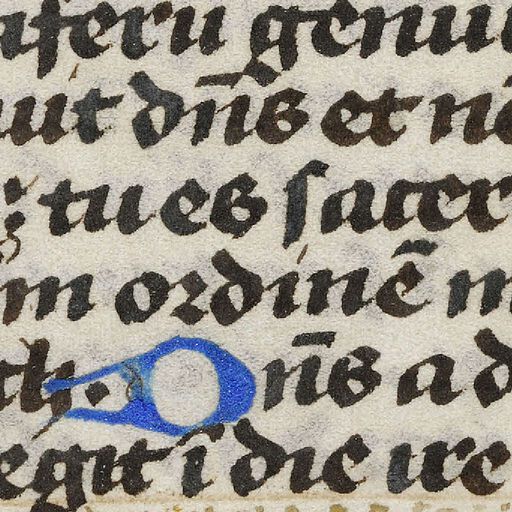 iferū genui
uit dn̄s et nō
ꝫ tu es sacer
m ordinē m
ch. Dn̄s a d
egit ī die ire